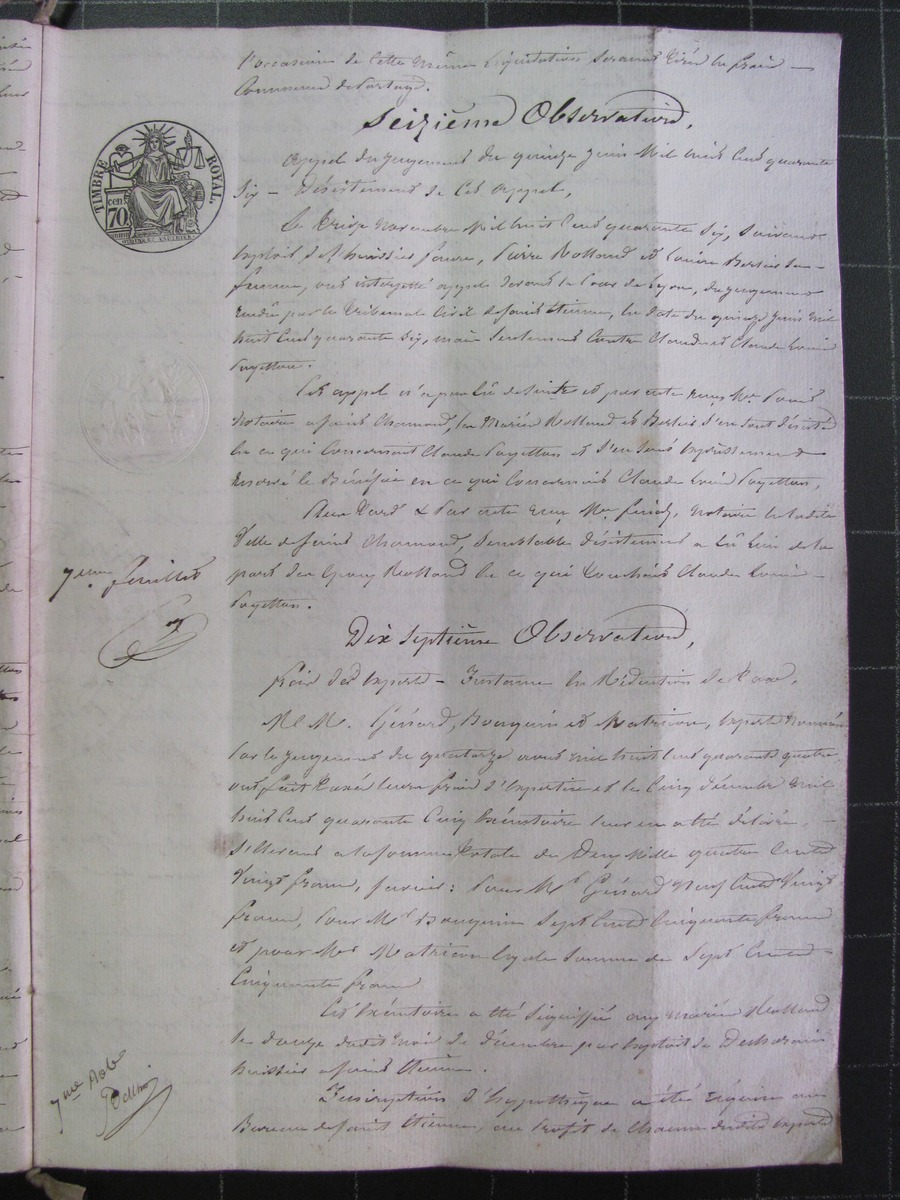 l'occasion de cette même liquidation seront tirés en frais
communs de partage.
Seizième Observation,
TIMBRE ROYAL.
cen. 70
Appel du jugement du quinze juin mil huit cent quarante
six — Désistement de cet appel,
Le treize novembre mil huit cent quarante six, suivant
exploit de l'huissier faure, Pierre Rolland et Louise Bertier sa
femme, ont interjetté appel devant la Cour de Lyon, du jugement
rendu par le tribunal civil de Saint Etienne, en date du quinze juin mil
huit cent quarante six, mais seulement contre Claude et Claude Louis
Payetton.
Cet appel n'a pas été de suite et par acte reçu Me
notaire à Saint Chamond, les mariés Rolland et Bertier s'en sont désistés
en ce qui concernait Claude Payetton et s'en sont expressément
réservé le bénéfice en ce qui concernait Claude Louis Payetton,
Plus tard & par acte reçu Me notaire en ladite
Ville de Saint Chamond, semblable désistement a eu lieu de la
part des époux Rolland en ce qui touchait Claude Louis
Payetton.
7eme feuillet
Dix Septième Observation,
frais des experts — Instance en Réduction de taxe,
M.M. Génard, Bonguin et Matricon, experts nommés
par le jugement du quatorze août mil huit cent quarante quatre
ont fait taxé leurs frais d'expertise et le cinq décembre mil
huit cent quarante cinq exécutoire leur en a été délivré,
s'élevant à la somme totale de Deux Mille quatre cents
vingt francs, savoir: pour Mr Génard neuf cents vingt
francs, pour Mr Bonguin sept cents cinquante francs
et pour Mr Matricon égale somme de sept cents
cinquante francs
Cet exécutoire a été signifié aux mariés Rolland
le douze dudit mois de décembre par exploit de
huissier à Saint Etienne.
Inscription d'hypothèque a été requise au
Bureau de Saint Etienne, au profit de chacun desdits experts
7me Role